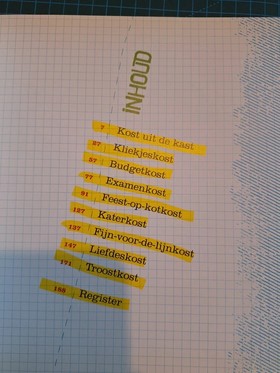 INHOUD
7 Kost uit de kast
37 Kliekjeskost
57 Budgetkost
77 Examenkost
91 Feest-op-kotkost
127 Katerkost
137 Fijn-voor-de-lijnkost
147 Liefdeskost
171 Troostkost
188 Register